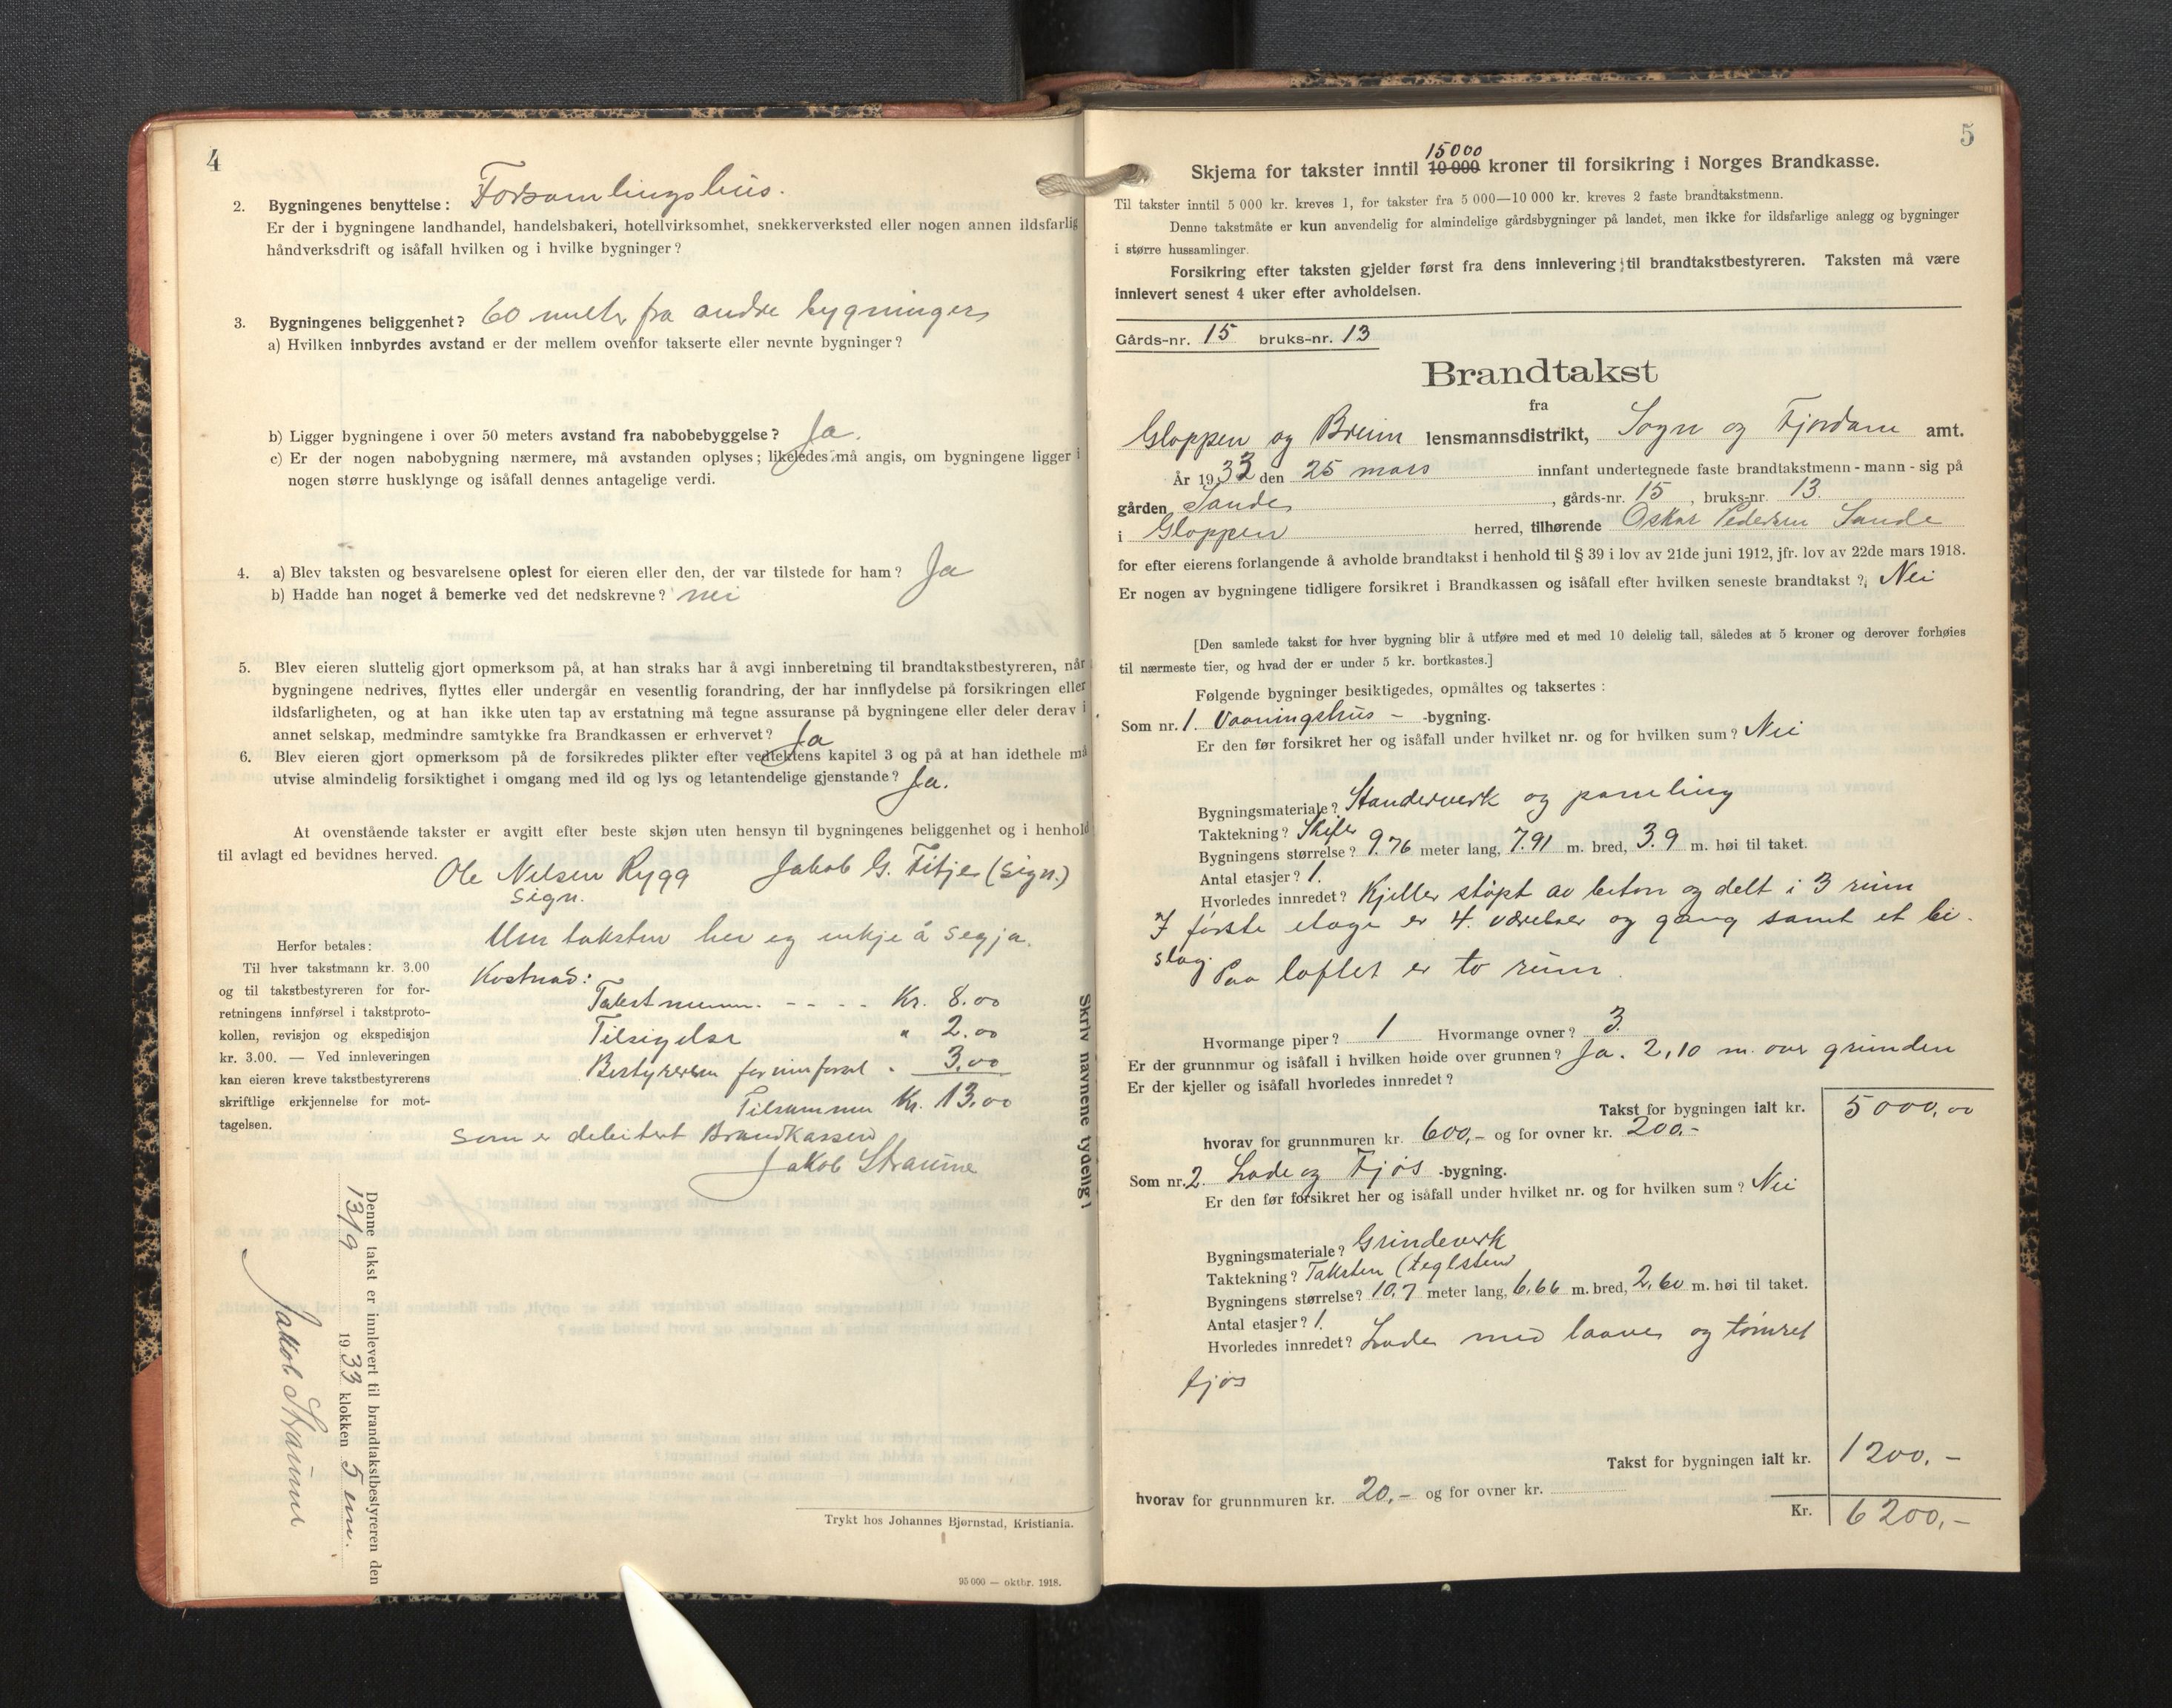 4
2. Bygningenes benyttelse: Forsamlingshus.
Er der i bygningene landhandel, handelsbakeri, hotellvirksomhet, snekkerverksted eller nogen annen ildsfarlig
håndverksdrift og isåfall hvilken og i hvilke bygninger?
3. Bygningenes beliggenhet? 60 meter fra andre bygninger
a) Hvilken innbyrdes avstand er der mellem ovenfor takserte eller nevnte bygninger?
b) Ligger bygningene i over 50 meters avstand fra nabobebyggelse? Ja.
c) Er der nogen nabobygning nærmere, må avstanden oplyses; likeledes må angis, om bygningene ligger i
nogen større husklynge og isåfall dennes antagelige verdi.
4. a) Blev taksten og besvarelsene oplest for eieren eller den, der var tilstede for ham? Ja
b) Hadde han noget å bemerke ved det nedskrevne? nei
5. Blev eieren sluttelig gjort opmerksom på, at han straks har å avgi innberetning til brandtakstbestyreren, når
bygningene nedrives, flyttes eller undergår en vesentlig forandring, der har innflydelse på forsikringen eller
ildsfarligheten, og at han ikke uten tap av erstatning må tegne assuranse på bygningene eller deler derav i
annet selskap, medmindre samtykke fra Brandkassen er erhvervet? Ja
6. Blev eieren gjort opmerksom på de forsikredes plikter efter vedtektens kapitel 3 og på at han idethele må
utvise almindelig forsiktighet i omgang med ild og lys og letantendelige gjenstande? Ja.
At ovenstående takster er avgitt efter beste skjøn uten hensyn til bygningenes beliggenhet og i henhold
til avlagt ed bevidnes herved.
Ole Nilsen Rygg Jakob G. Fitje (sign.)
Sign.
Um taksten hev eg inkje å segja.
Kostnad:
Takstmenn. - - - - Kr. 8.00
Tilsigelse " 2.00
Bestyreren for innførsel " 3,00
Tilsammen Kr. 13,00
som er debitert Brandkassen
Jakob Straume
Herfor betales:
Til hver takstmann kr. 3.00
og til takstbestyreren for for-
retningens innførsel i takstproto-
kollen, revisjon og ekspedisjon
kr. 3.00. — Ved innleveringen
kan eieren kreve takstbestyrerens
skriftlige erkjennelse for mot-
tagelsen.
Skriv navnene tydelig!
Denne takst er innlevert til brandtakstbestyreren den
13/9 1933 klokken 5 em.
Jakob Straume
Trykt hos Johannes Bjørnstad, Kristiania.
95 000 — oktbr. 1918.
5
15000
Skjema for takster inntil 10 000 kroner til forsikring i Norges Brandkasse.
Til takster inntil 5 000 kr. kreves 1, for takster fra 5 000—10 000 kr. kreves 2 faste brandtakstmenn.
Denne takstmåte er kun anvendelig for almindelige gårdsbygninger på landet, men ikke for ildsfarlige anlegg og bygninger
i større hussamlinger.
Forsikring efter taksten gjelder først fra dens innlevering til brandtakstbestyreren. Taksten må være
innlevert senest 4 uker efter avholdelsen.
Gårds-nr. 15 bruks-nr. 13
Brandtakst
fra
Gloppen og Breim lensmannsdistrikt, Sogn og Fjordane amt.
År 1933 den 25 mars innfant undertegnede faste brandtakstmenn - mann - sig på
gården Sande, gårds-nr. 15, bruks-nr. 13.
i Gloppen herred, tilhørende Oskar Pedersen Sande
for efter eierens forlangende å avholde brandtakst i henhold til § 39 i lov av 21de juni 1912, jfr. lov av 22de mars 1918.
Er nogen av bygningene tidligere forsikret i Brandkassen og isåfall efter hvilken seneste brandtakst? Nei
[Den samlede takst for hver bygning blir å utføre med et med 10 delelig tall, således at 5 kroner og derover forhøies
til nærmeste tier, og hvad der er under 5 kr. bortkastes.]
Følgende bygninger besiktigedes, opmåltes og taksertes:
Som nr. 1 Vaaningshus - -bygning.
Er den før forsikret her og isåfall under hvilket nr. og for hvilken sum? Nei
Bygningsmateriale? Standerverk og paneling
Taktekning? Skifer
Bygningens størrelse? 9.76 meter lang, 7.91 m. bred, 3.9 m. høi til taket.
Antal etasjer? 1.
Hvorledes innredet? Kjeller støpt av beton og delt i 3 rum
I første etage er 4. værelser og gang samt et bi-
slag. Paa loftet er to rum.
Hvormange piper? 1 Hvormange ovner? 3.
Er der grunnmur og isåfall i hvilken høide over grunnen? Ja. 2,10 m. over grunden
Er der kjeller og isåfall hvorledes innredet?
Takst for bygningen ialt kr. 5000,00
hvorav for grunnmuren kr. 600,- og for ovner kr. 200.-
Som nr. 2. Lade og Fjøs -bygning.
Er den før forsikret her og isåfall under hvilket nr. og for hvilken sum? Nei
Bygningsmateriale? Grindverk
Taktekning? Taksten (teglsten)
Bygningens størrelse? 10,7 meter lang, 6,66 m. bred, 2,60 m. høi til taket.
Antal etasjer? 1.
Hvorledes innredet? Lade med laave og tømret
fjøs
Takst for bygningen ialt kr. 1200.-
hvorav for grunnmuren kr. 20,- og for ovner kr.
Kr. 6200,-